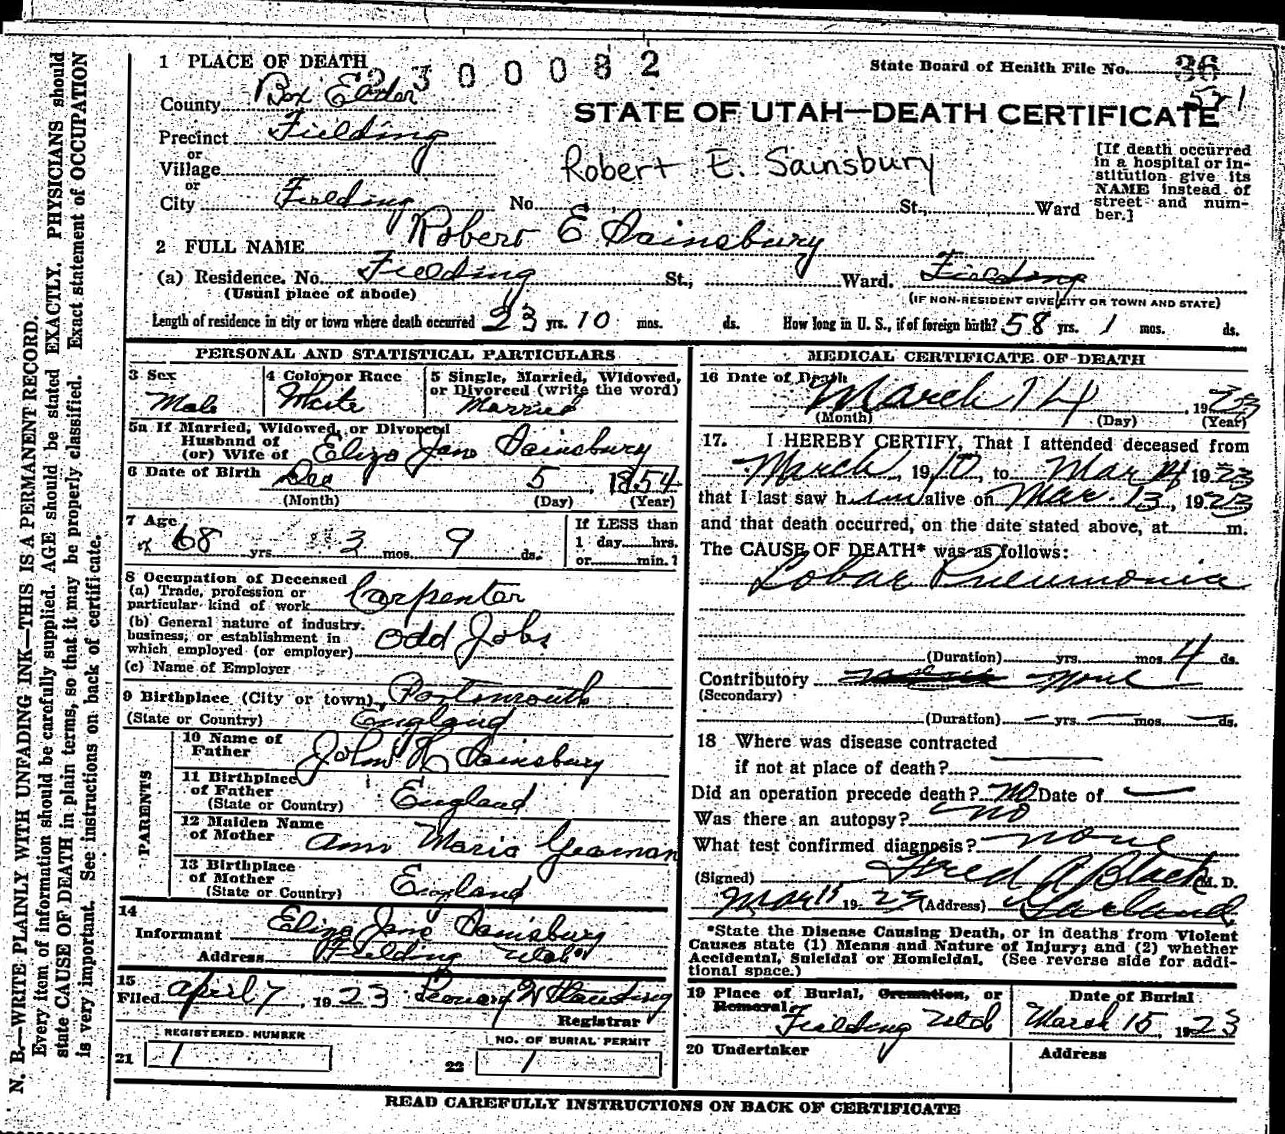 1 PLACE OF DEATH
2300082
State Board of Health File No. 36
521
County Box Elder
STATE OF UTAH—DEATH CERTIFICATE
Precinct Fielding
or
Village
or
City Fielding No. St., Ward
Robert E. Sainsbury
[If death occurred
in a hospital or in-
stitution give its
NAME instead of
street and num-
ber.]
2 FULL NAME Robert E Sainsbury
(a) Residence. No. Fielding St., Ward. Fielding
(Usual place of abode) (IF NON-RESIDENT GIVE CITY OR TOWN AND STATE)
Length of residence in city or town where death occurred 23 yrs. 10 mos. ds. How long in U. S., if of foreign birth? 58 yrs. 1 mos. ds.
PERSONAL AND STATISTICAL PARTICULARS
3 Sex
Male
4 Color or Race
White
5 Single, Married, Widowed,
or Divorced (write the word)
Married
5a If Married, Widowed, or Divorced
Husband of
(or) Wife of Eliza Jane Sainsbury
6 Date of Birth Dec 5, 1854
(Month) (Day) (Year)
7 Age
68 yrs. 3 mos. 9 ds.
If LESS than
1 day hrs.
or min.?
8 Occupation of Deceased
(a) Trade, profession or
particular kind of work Carpenter
(b) General nature of industry,
business, or establishment in
which employed (or employer) Odd Jobs
(c) Name of Employer
9 Birthplace (City or town) Portsmouth
(State or Country) England
PARENTS
10 Name of
Father John H Sainsbury
11 Birthplace
of Father
(State or Country) England
12 Maiden Name
of Mother Ann Maria Yeoman
13 Birthplace
of Mother
(State or Country) England
14
Informant Eliza Jane Sainsbury
Address Fielding Utah
15
Filed April 7, 1923
Registrar
REGISTERED NUMBER
21 1
NO. OF BURIAL PERMIT
22 1
MEDICAL CERTIFICATE OF DEATH
16 Date of Death
March 14, 1923
(Month) (Day) (Year)
17. I HEREBY CERTIFY, That I attended deceased from
March, 1910, to Mar 14 1923
that I last saw him alive on Mar. 13, 1923
and that death occurred, on the date stated above, at m.
The CAUSE OF DEATH* was as follows:
Lobar Pneumonia
(Duration) yrs. mos. 4 ds.
Contributory none
(Secondary)
(Duration) — yrs. — mos. — ds.
18 Where was disease contracted
if not at place of death?
Did an operation precede death? No Date of —
Was there an autopsy? no
What test confirmed diagnosis? none
(Signed) Fred A Black M. D.
Mar 15 1923 (Address) Garland
*State the Disease Causing Death, or in deaths from Violent
Causes state (1) Means and Nature of Injury; and (2) whether
Accidental, Suicidal or Homicidal. (See reverse side for addi-
tional space.)
19 Place of Burial, Cremation, or
Removal
Fielding Utah
Date of Burial
March 15, 1923
20 Undertaker
Address
READ CAREFULLY INSTRUCTIONS ON BACK OF CERTIFICATE
N. B.—WRITE PLAINLY WITH UNFADING INK—THIS IS A PERMANENT RECORD.
Every item of information should be carefully supplied. AGE should be stated EXACTLY. PHYSICIANS should
state CAUSE OF DEATH in plain terms, so that it may be properly classified. Exact statement of OCCUPATION
is very important. See instructions on back of certificate.